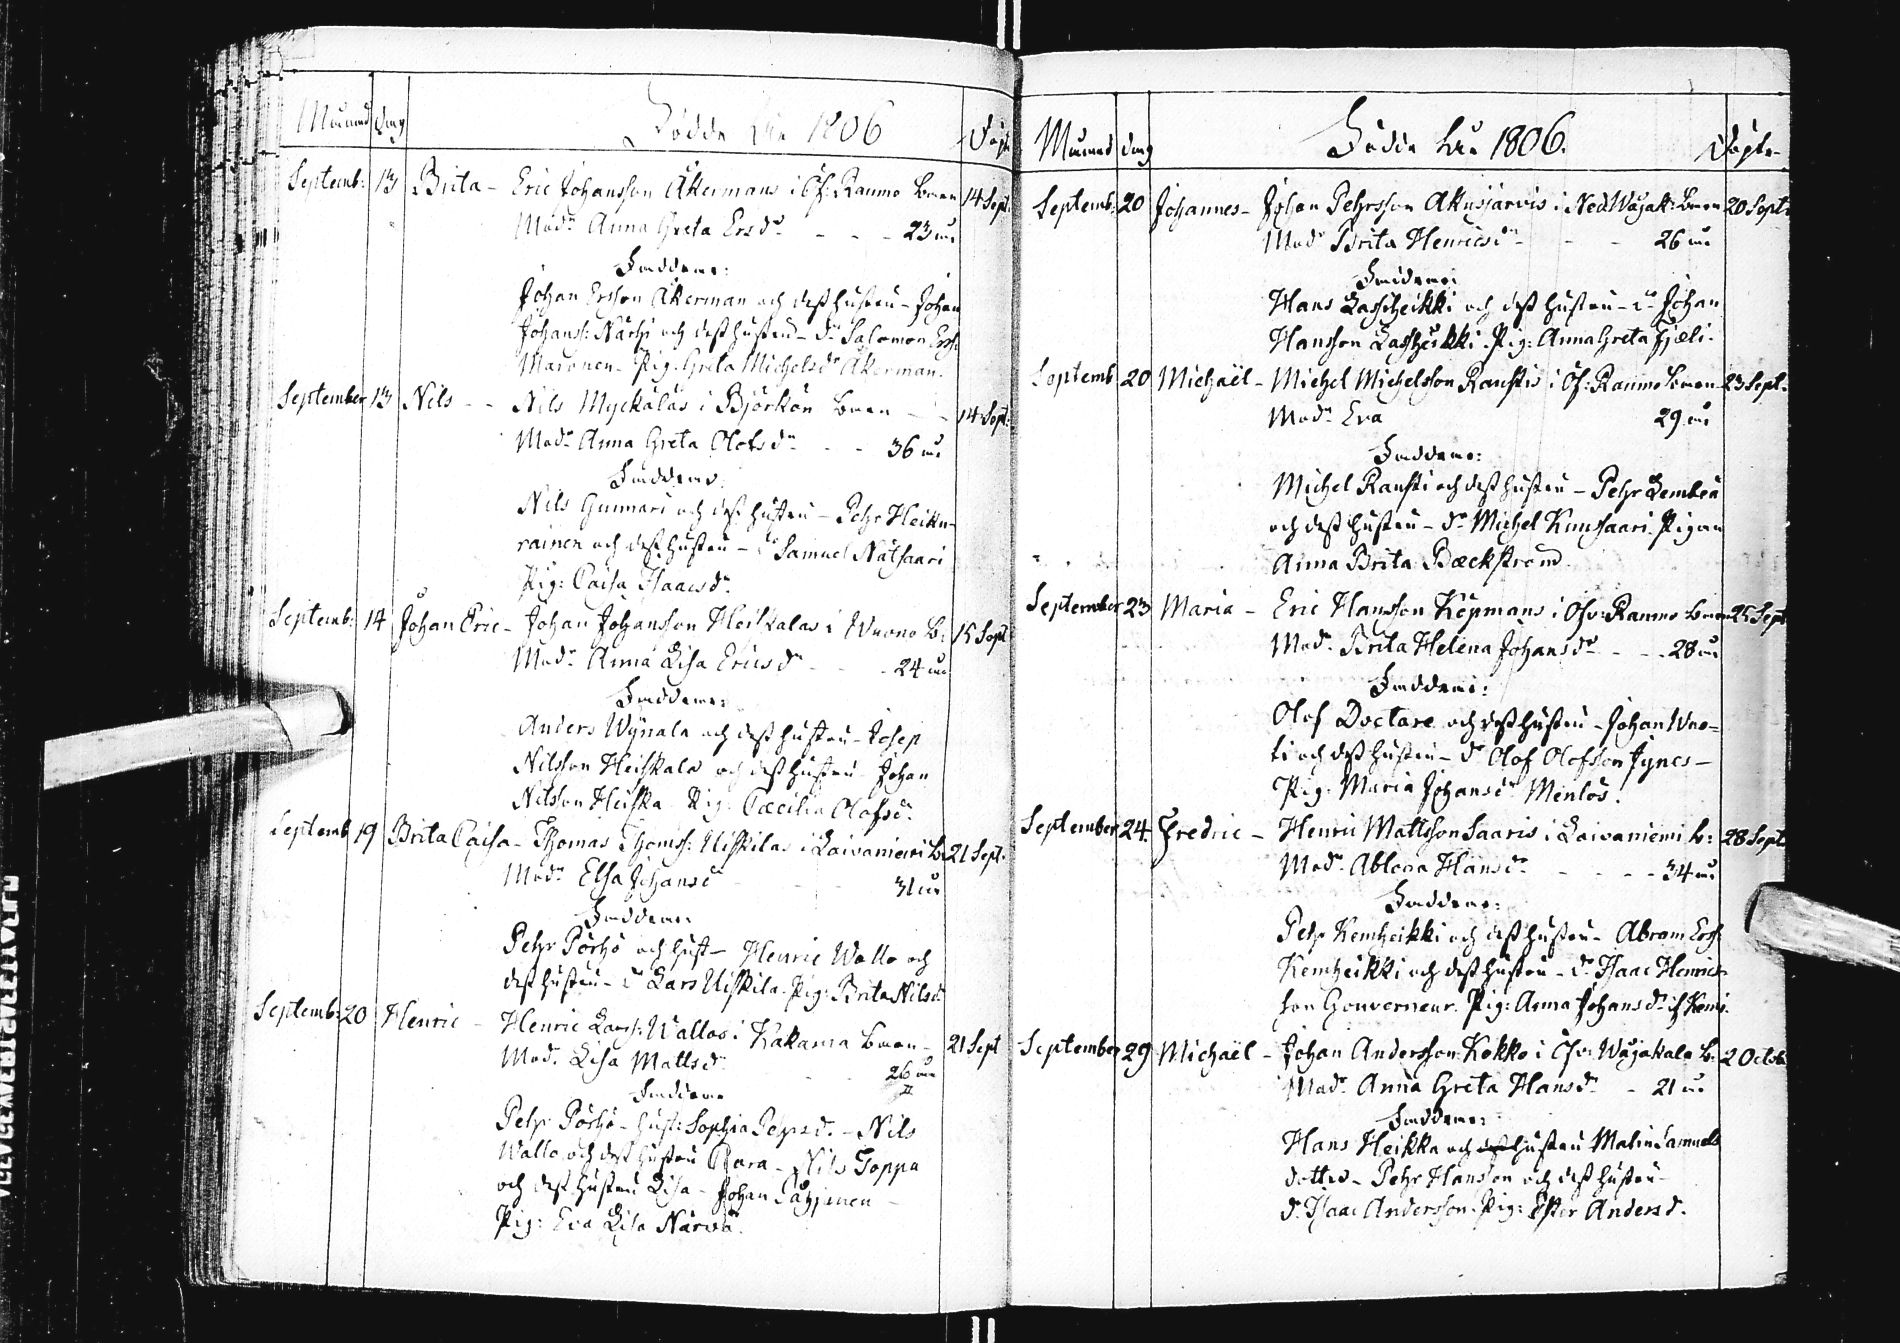 Månad Dag Födde År 1806 Döpte
Septemb: 13 Brita - Eric Johansson Åkermans i Öf: Raumo Barn 14 Sept:
Modr Anna Greta Ersdr - - - 23 år
Faddrane:
Johan Ersson Åkerman och dess hustru - Johan
Johanss: Närhi och dess hustru - dr Salomon Erss:
Maronen - Pig. Greta Michelsdr Åkerman.
September 13 Nils - - Nils Myckälas i Björkön Barn - - 14 Sept:
Modr Anna Greta Olofsdr - - 36 år
Faddrane:
Nils Gunnari och dess hustru - Pehr Heiku-
rainen och dess hustru - dr Samuel Nätsaari
Pig: Caisa Isaacsdr
Septemb: 14 Johan Eric - Johan Johansson Heiskalas i Wuono B: 15 Sept
Modr Anna Lisa Ericsdr - - - 24 år
Faddrane:
Anders Wynala och dess hustru - Josep
Nilsson Heiskala och dess hustru - Johan
Nilsson Heiska - Pig: Cæcilia Olofsdr
Septemb 19 Brita Caisa - Thomas Thomss: Uiskilas i Laivaniemi B: 21 Sept:
Modr Elsa Johansdr - - - 31 år
Faddrane:
Pehr Pörhö och hust - Henric Wallo och
dess hustru - dr Lars Uiskila. Pig: Brita Nilsdr
Septemb: 20 Henric - Henric Larss: Wallas i Kakama Barn - 21 Sept
Mod. Lisa Mattsdr - - 26 år
Faddrane
Pehr Pörhö - hust: Sophia Pehrsd. - Nils
Wallo och dess hustru Cara - Nils Toppa
och dess hustru Lisa - Johan
Pig: Eva Lisa Närvä.
Månad Dag Födde År 1806. Döpte
Septemb: 20 Johannes - Johan Pehrsson Akusjärvis i Ned Wojak: Barn 20 Sept:
Modr Brita Henricsdr - - - 26 år
Faddrane:
Hans Lassheikki och dess hustru - dr Johan
Hansson Lassheikki. Pig: Anna Greta Fjæli.
Septemb 20 Michaël - Michel Michelsson Rauskis i Öf: Raumo Barn 23 Sept.
Modr Eva 29 år
Faddrane:
Michel Rauski och dess hustru - Pehr Lembea
och dess hustru - dr Michel Kuusaari. Pigan
Anna Brita Bæckström
September 23 Maria - Eric Hansson Köpmans i Öfv: Raumo Barn 25 Sept
Modr Brita Helena Johansdr - - 28 år
Faddrane:
Olof Doctare och dess hustru - Johan Wuo-
ti och dess hustru - dr Olof Olofsson Jynes -
Pig: Maria Johansdr Menlös.
September 24. Fredric - Henric Mattsson Saaris i Laivaniemi B: 28 Sept:
Modr Ablona Hansdr - - - - 34 år
Faddrane:
Pehr Kemheikki och dess hustru - Abram Erss:
Kemheikki och dess hustru - dr Isaac Henrics-
son Gouverneur. Pig: Anna Johansdr if Kemi.
September 29 Michaël - Johan Andersson Kokko i Öfv: Wojakala B: 2 Octob
Modr Anna Greta Hansdr - 21 år
Faddrane:
Hans Heikka och hustru Malin Samuels
dotter - Pehr Hansson och dess hustru -
dr Isaac Andersson. Pig: Ester Andersd.